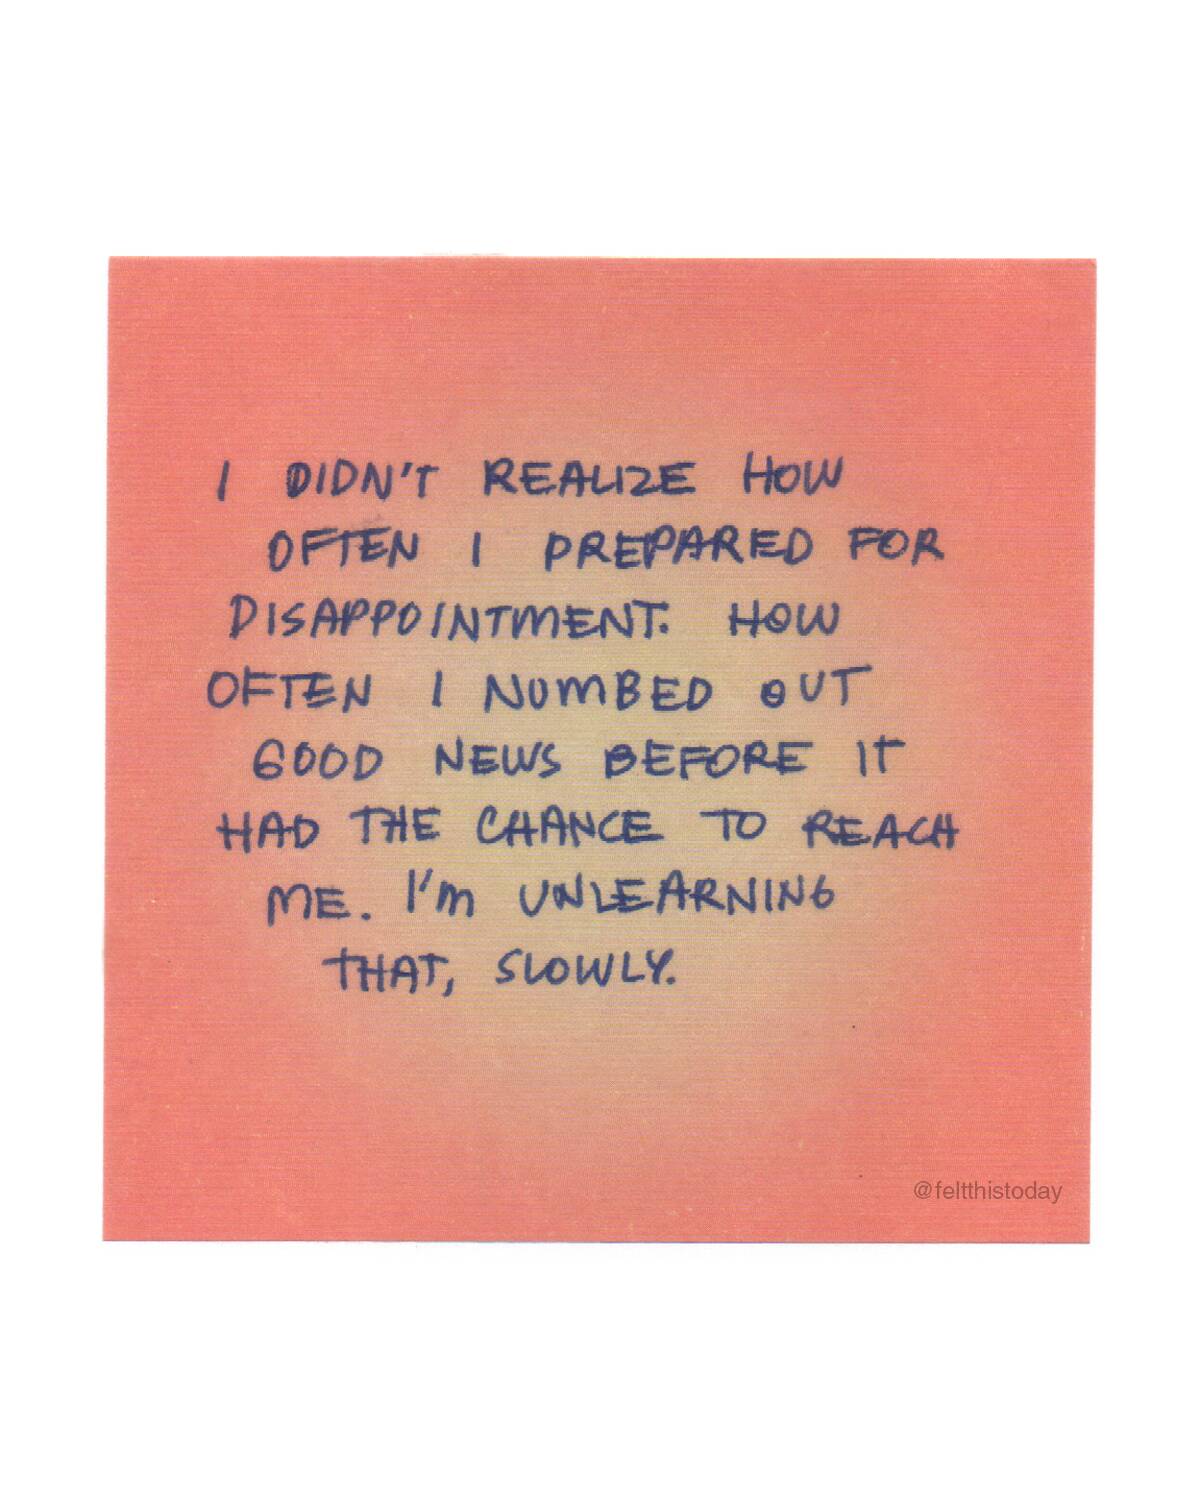 I DIDN'T REALIZE HOW
OFTEN I PREPARED FOR
DISAPPOINTMENT. HOW
OFTEN I NUMBED OUT
GOOD NEWS BEFORE IT
HAD THE CHANCE TO REACH
ME. I'm UNLEARNING
THAT, SLOWLY.
@feltthistoday